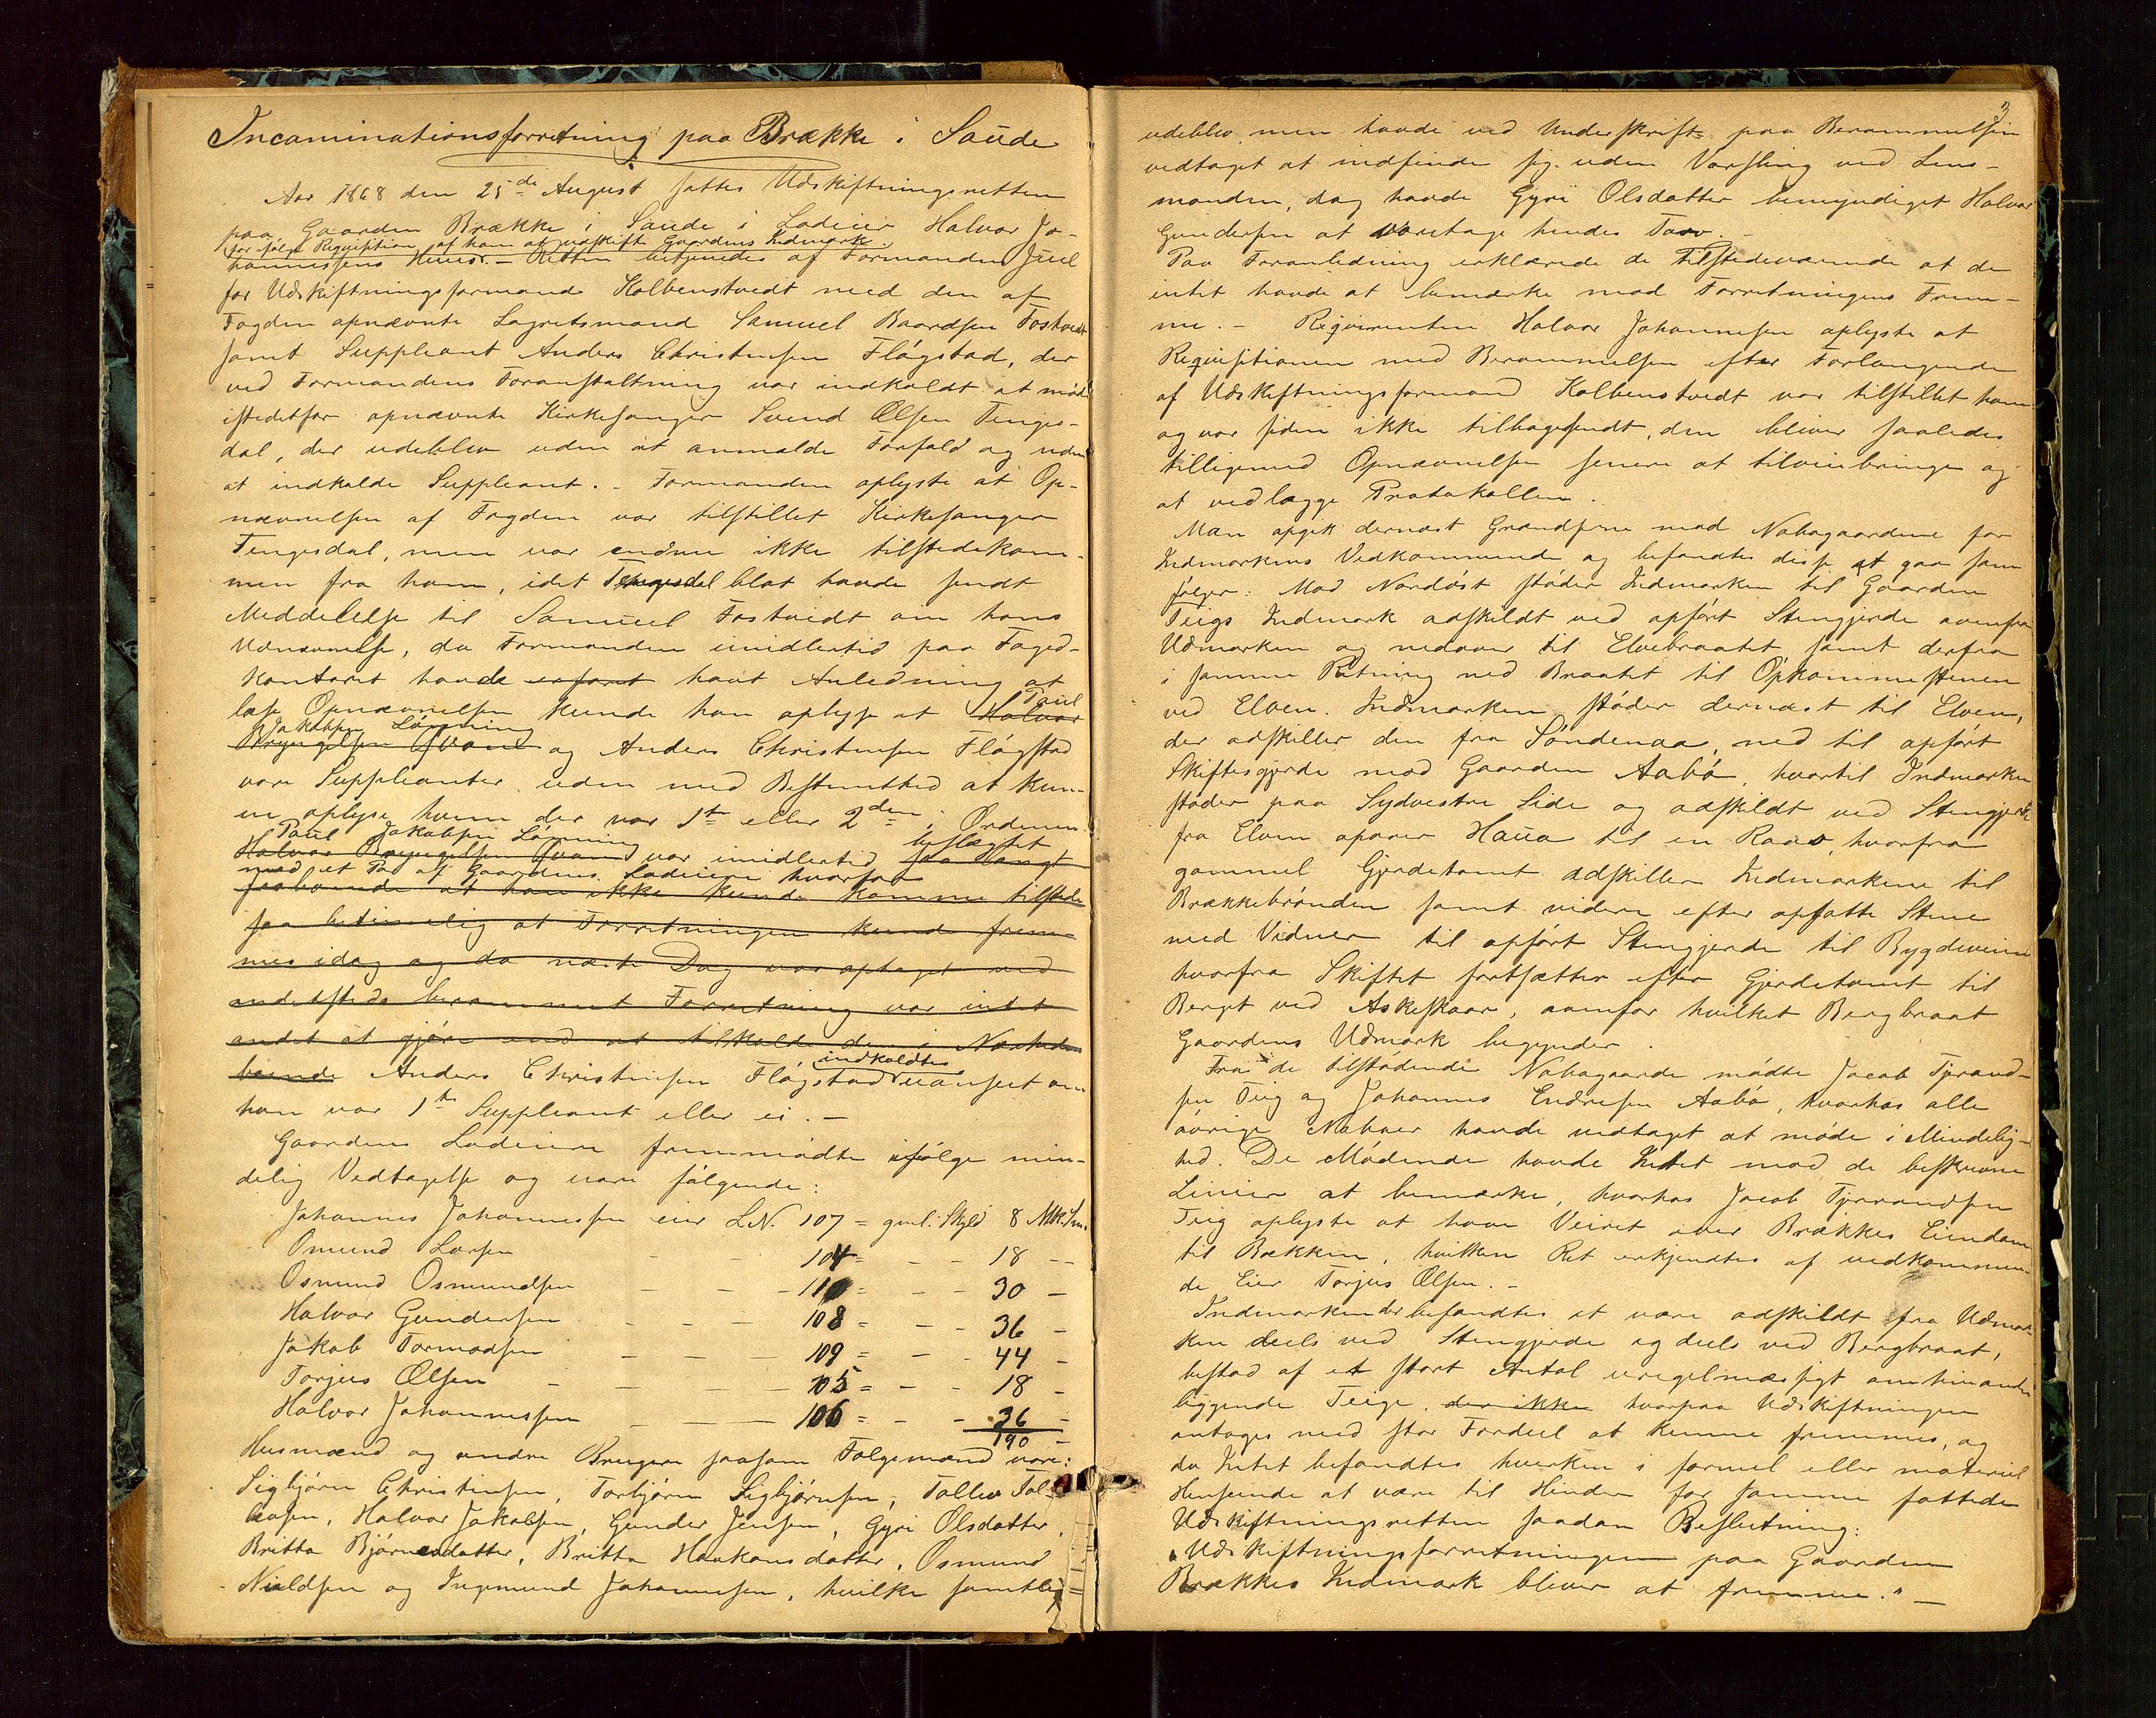 Incaminationsforretning paa Brække i Saude
Aar 1868 den 25de August sattes Udskiftningsretten
paa Gaarden Brække i Saude i Lodeier Halvor Jo-
ifølge Requisition af ham at udskifte Gaardens Indmark.
hannessens Huus. – Retten betjenedes af Formanden Juel
for Udskiftningsformand Kolbenstvedt med den af
Fogden opnævnte Lagretsmand Samuel Baardsen Fostvedt
samt Suppleant Anders Christensen Fløgstad, der
ved Formandens Foranstaltning var indkaldt at møde
istedetfor opnævnte Kirkesanger Svend Olsen Tenges-
dal, der udeblev uden at anmelde Forfald og uden
at indkalde Suppleant. – Formanden oplyste at Op-
nævnelsen af Fogden var tilstillet Kirkesanger
Tengesdal, men var endnu ikke tilstedekom-
men fra ham, idet Tengesdal blot havde sendt
Meddelelse til Samuel Fostvedt om hans
Udnævnelse, da Formanden imidlertid paa Foged-
kontoret havde erfaret havt Anledning at
læse Opnævnelsen kunde han oplyse at Halvor Paul
Jakobsen Løvning
Bryngelsen Qvame og Anders Christensen Fløgstad
vare Suppleanter uden med Bestemthed at kun-
ne oplyse hvem der var 1ste eller 2den i Ordenen.
Paul Jakobsen Løvning beslægtet
Halvor Bryngelsen Qvame var imidlertid saa langt
med et Par af Gaardens Lodeiere hvorfor
fraboende at han ikke kunde komme tilstede
saa betimelig at Forretningen kunde frem-
mes idag og da næste Dag var optaget ved
andetsteds berammet Forretning var intet
andet at gjøre end at tilkalde den i Nærheden
boende Anders Christensen Fløgstad indkaldtes uanseet om
han var 1ste Suppleant eller ei. –
Gaardens Lodeiere fremmødte ifølge min-
delig Vedtagelse og vare følgende:
Johannes Johannessen eier L.N. 107 = gml. Skyld 8 Mk. Sm.
Omund Larsen – – 104 = – – 18 –
Osmund Osmundsen – – – 110 = – – 30 –
Halvor Gundersen – – – 108 = – – 36 –
Jakob Tormodsen – – – 109 = – – 44 –
Torjus Olsen – – – – 105 = – – 18 –
Halvor Johannessen – – – 106 = – – 36 –
190 –
Husmænd og andre Brugere saasom Folgemænd vare:
Sigbjørn Christensen, Torbjørn Sigbjørnsen, Tollev Tol-
levsen, Halvor Jakobsen, Gunder Jensen, Gyri Olsdatter,
Britta Bjørnsdatter, Britta Haakonsdatter, Osmund
Nieldsen og Ingemund Johannesen, hvilke samtlige
3
udeblev men havde ved Underskrift paa Berammelsen
vedtaget at indfinde sig uden Varsling ved Lens-
manden, dog havde Gyri Olsdatter bemyndiget Halvor
Gundersen at varetage hendes Tarv. –
Paa Foranledning erklærede de Tilstedeværende at de
intet havde at bemærke mod Forretningens Frem-
me. – Reqvirenten Halvor Johannesen oplyste at
Requisitionen med Berammelsen efter Forlangende
af Udskiftningsformand Kolbenstvedt var tilstillet ham
og var siden ikke tilbagesendt, den bliver saaledes
tilligemed Opnævnelsen senere at tilveiebringe og
at vedlægge Protokollen.
Man opgik dernæst Grændserne mod Nabogaardene for
Indmarkens Vedkommende og befandtes disse at gaa som
følger: Mod Nordøst støder Indmarken til Gaarden
Teigs Indmark adskildt ved opført Stengjerde ovenfra
Udmarken og nedover til Elvebraatet samt derfra
i samme Retning ned Braatet til Opkommestenen
ved Elven. Indmarken støder dernæst til Elven,
der adskiller den fra Søndenaa, ned til opført
Skiftesgjerde mod Gaarden Aabø, hvortil Indmarken
støder paa Sydvestre Side og adskildt ved Stengjerde
fra Elven opover Haua til en Raas, hvorfra
gammel Gjerdetomt adskiller Indmarkene til
Brækkebrønden samt videre efter opsatte Stene
med Vidner til opført Stengjerde til Bygdeveien
hvorfra Skiftet fortsætter efter Gjerdetomt til
Berget ved Askeskaar, ovenfor hvilket Bergbraat
Gaardens Udmark begynder.
Fra de tilstødende Nabogaarde mødte Jacob Tjrand-
sen Teig og Johannes Endresen Aabø, hvorhos alle
øvrige Naboer havde vedtaget at møde i Mindelig-
hed. De Mødende havde Intet mod de beskrevne
Linier at bemærke, hvorhos Jacob Tjerandsen
Teig oplyste at have Veiret over Brækkes Eiendom
til Bækken, hvilken Ret erkjendtes af vedkommen-
de Eier Torjus Olsen. –
Indmarken der befandtes at være adskildt fra Udmar-
ken deels ved Stengjerde og deels ved Bergbraat,
bestod af et stort Antal uregelmæssigt om hinanden
liggende Teige, der ikke hvorpaa Udskiftningen
antages med stor Fordeel at kunne fremmes, og
da Intet befandtes hverken i formel eller materiel
Henseende at være til Hinder for samme fattede
Udskiftningsretten saadan Beslutning:
"Udskiftningsforretningen paa Gaarden
Brækkes Indmark bliver at fremme." –